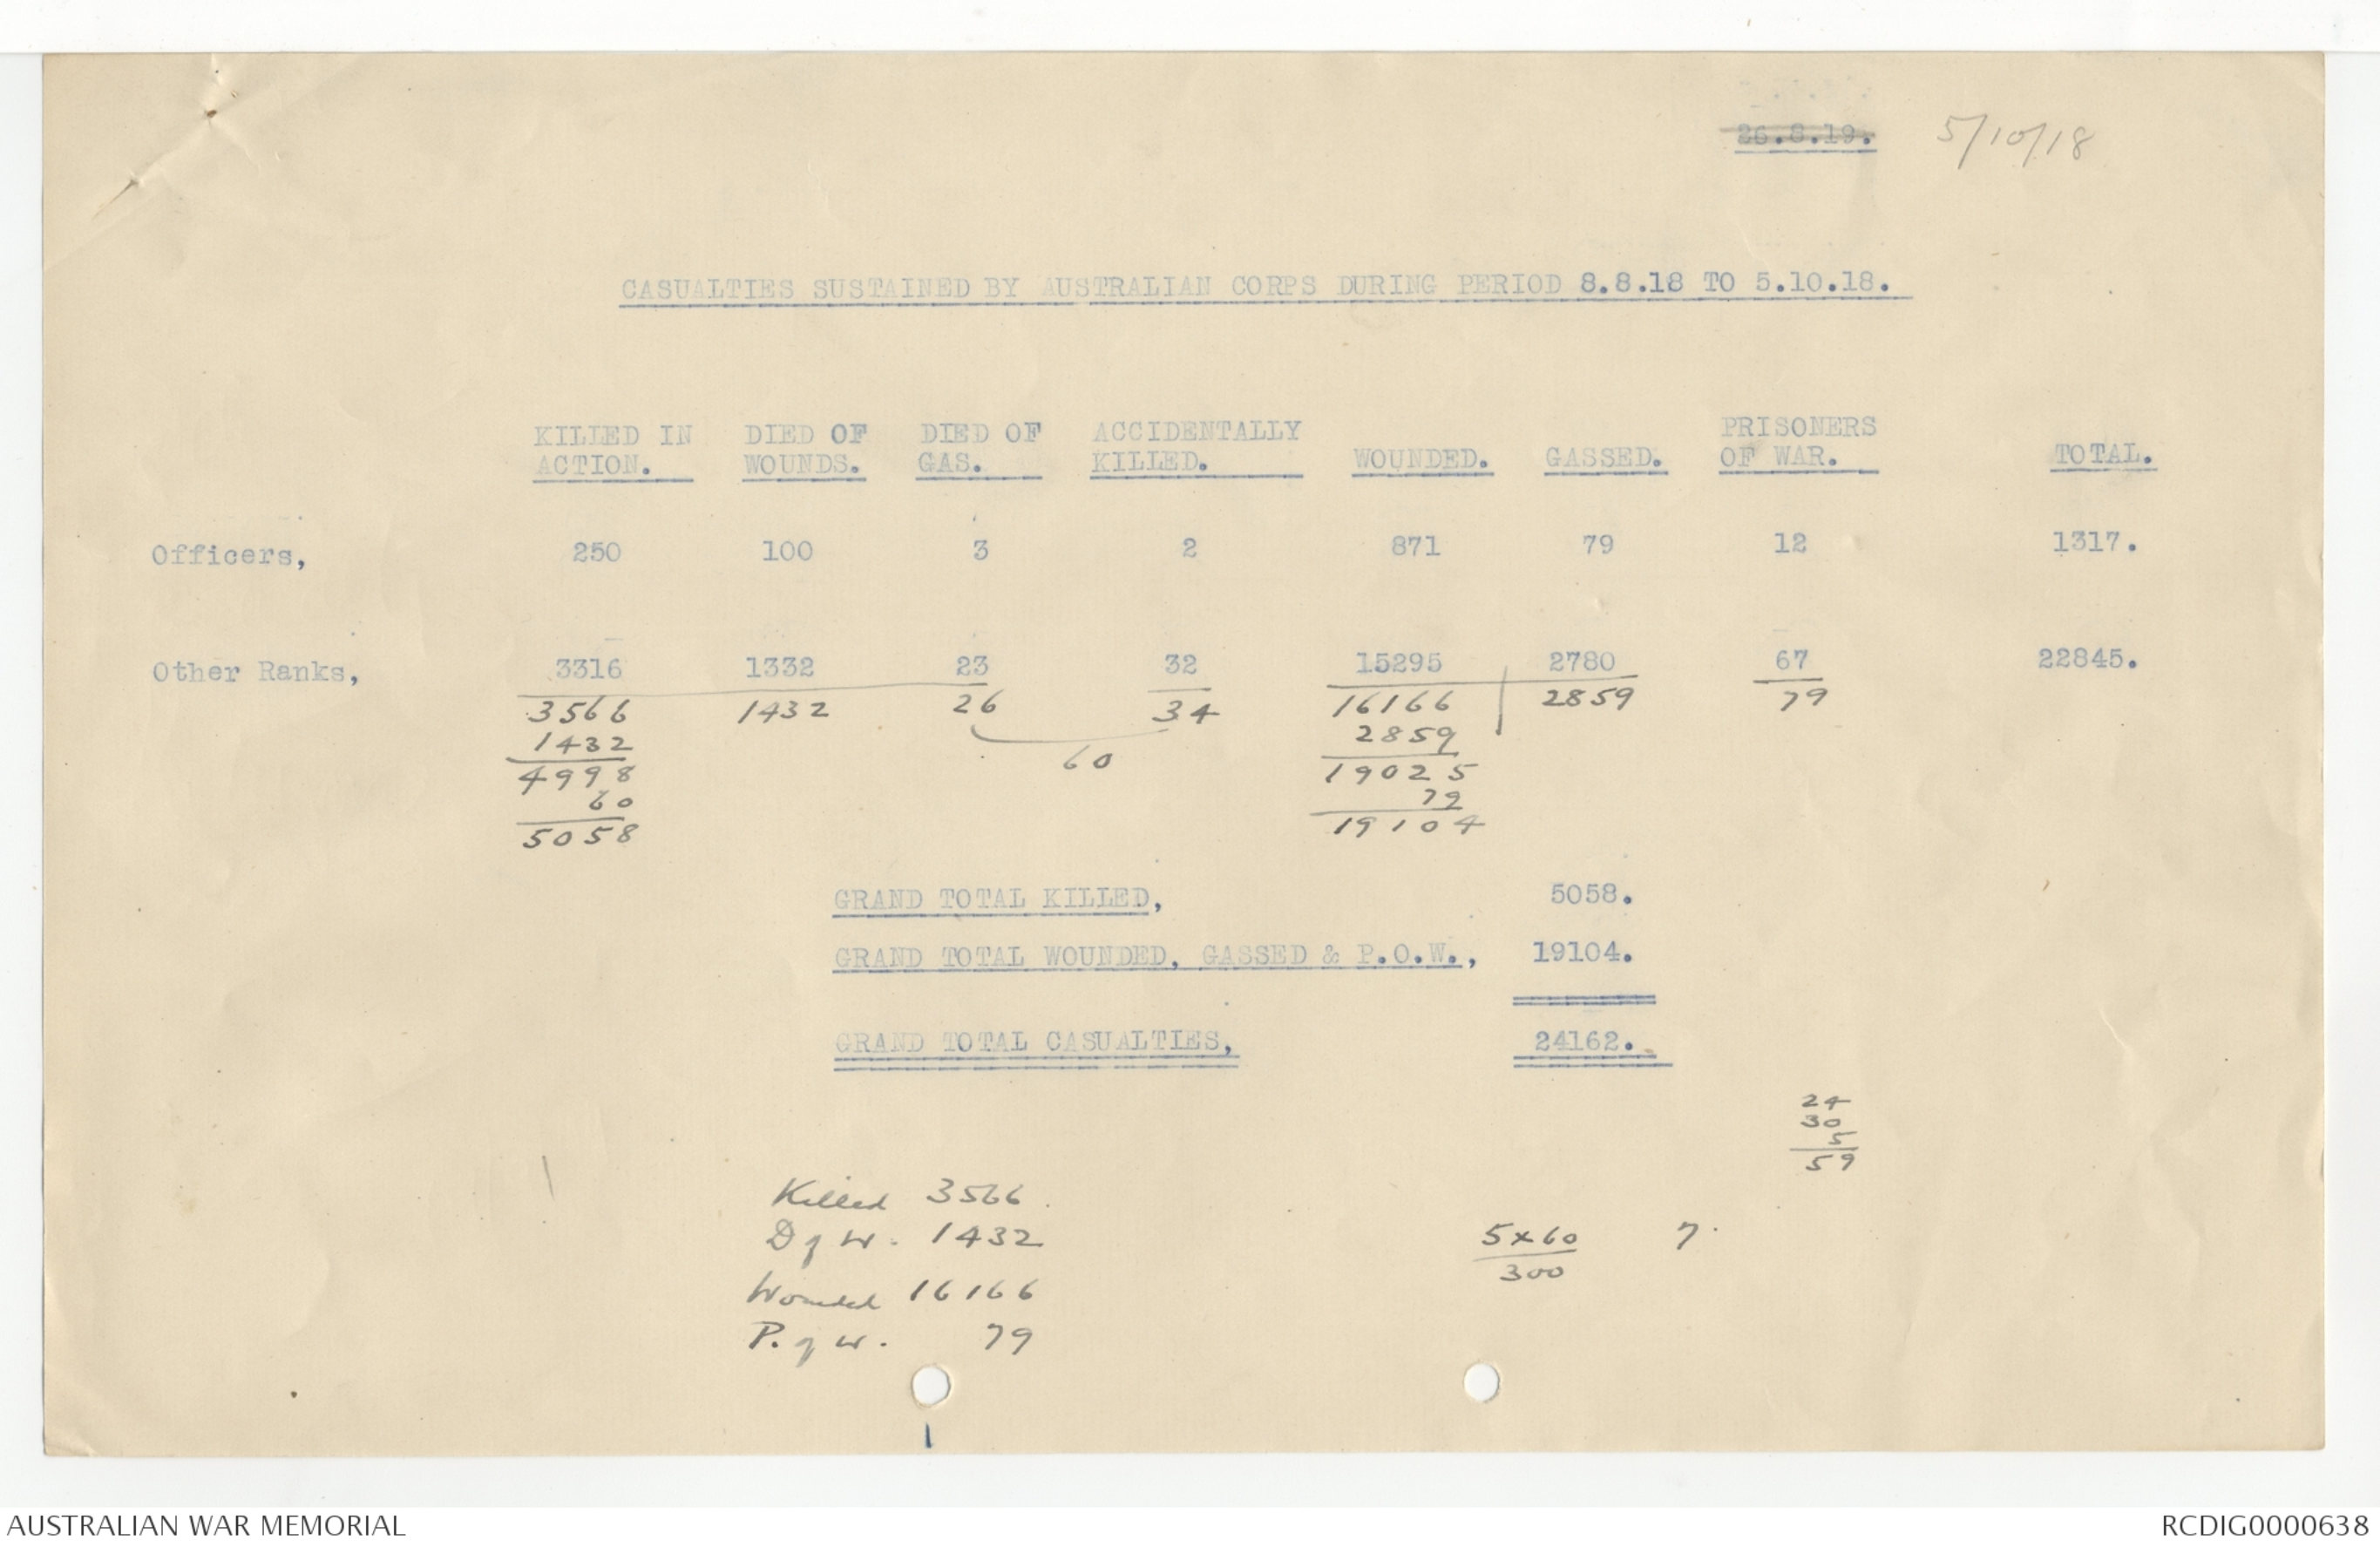 26.8.19. 5/10/18
CASUALTIES SUSTAINED BY AUSTRALIAN CORPS DURING PERIOD 8.8.18 TO 5.10.18.
KILLED IN ACTION. DIED OF WOUNDS. DIED OF GAS. ACCIDENTALLY KILLED. WOUNDED. GASSED. PRISONERS OF WAR. TOTAL.
Officers, 250 100 3 2 871 79 12 1317.
Other Ranks, 3316 1332 23 32 15295 2780 67 22845.
3566 1432 26 34 16166 2859 79
1432 2859
60
4998 19025
60 79
5058 19104
GRAND TOTAL KILLED, 5058.
GRAND TOTAL WOUNDED, GASSED & P.O.W., 19104.
GRAND TOTAL CASUALTIES, 24162.
24
30
5
59
Killed 3566
D of W. 1432
5x60 7.
300
Wounded 16166
P. of W. 79
AUSTRALIAN WAR MEMORIAL RCDIG0000638